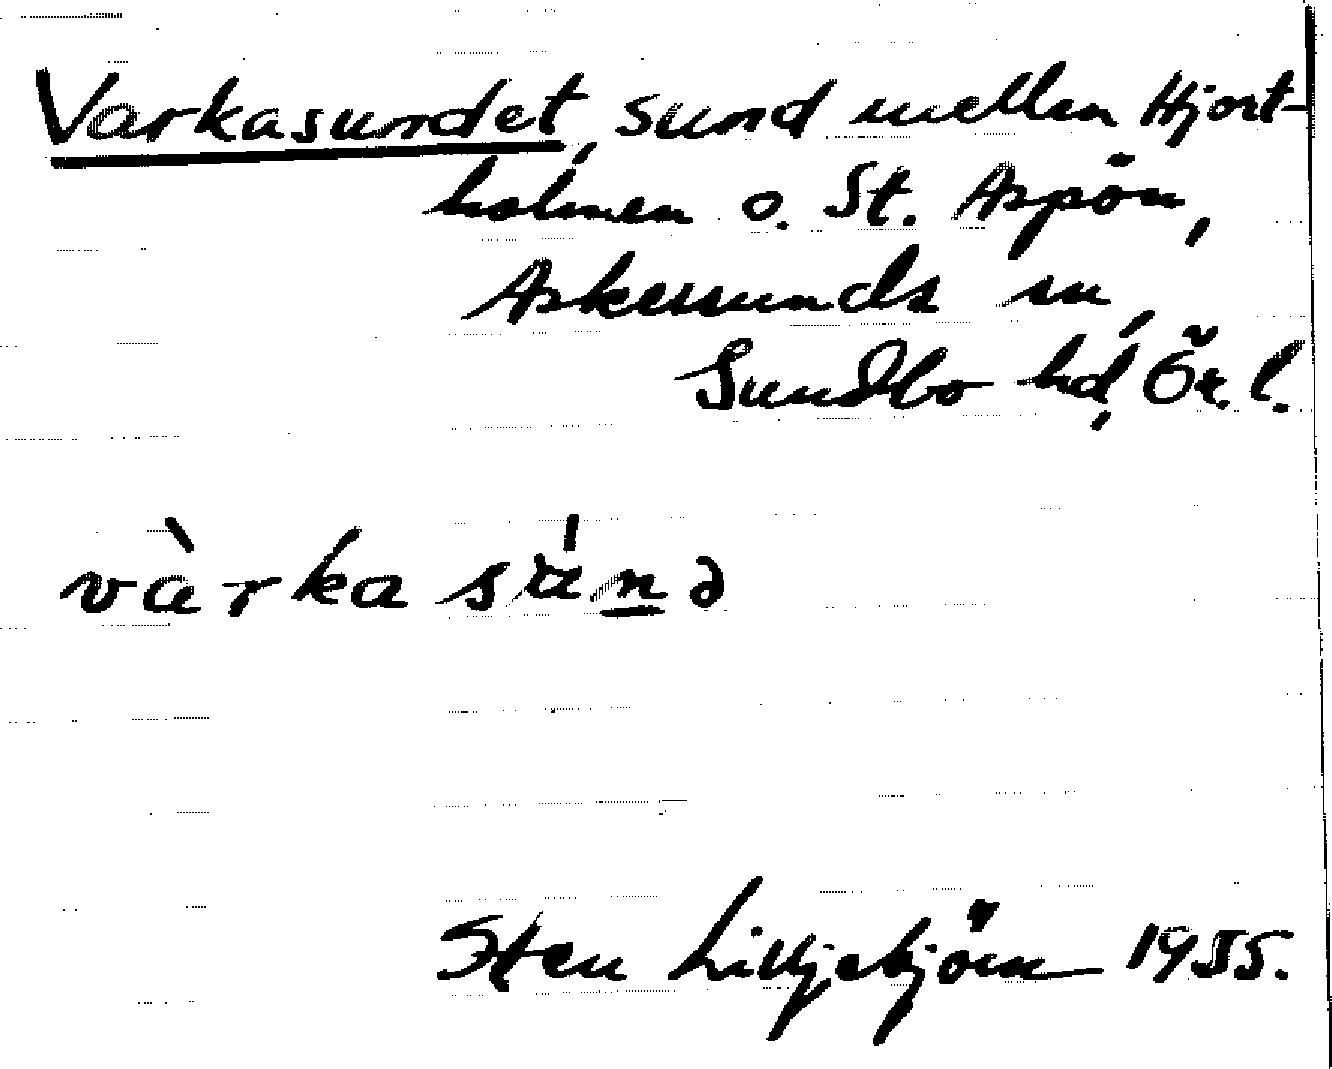 Varkasundet, sund mellan Hjort-
holmen o. St. Aspön,
Askersunds sn,
Sundbo hd, Ör. l.
vàrkasu̍n̲ə
Sten Lilljebjörn 1955.